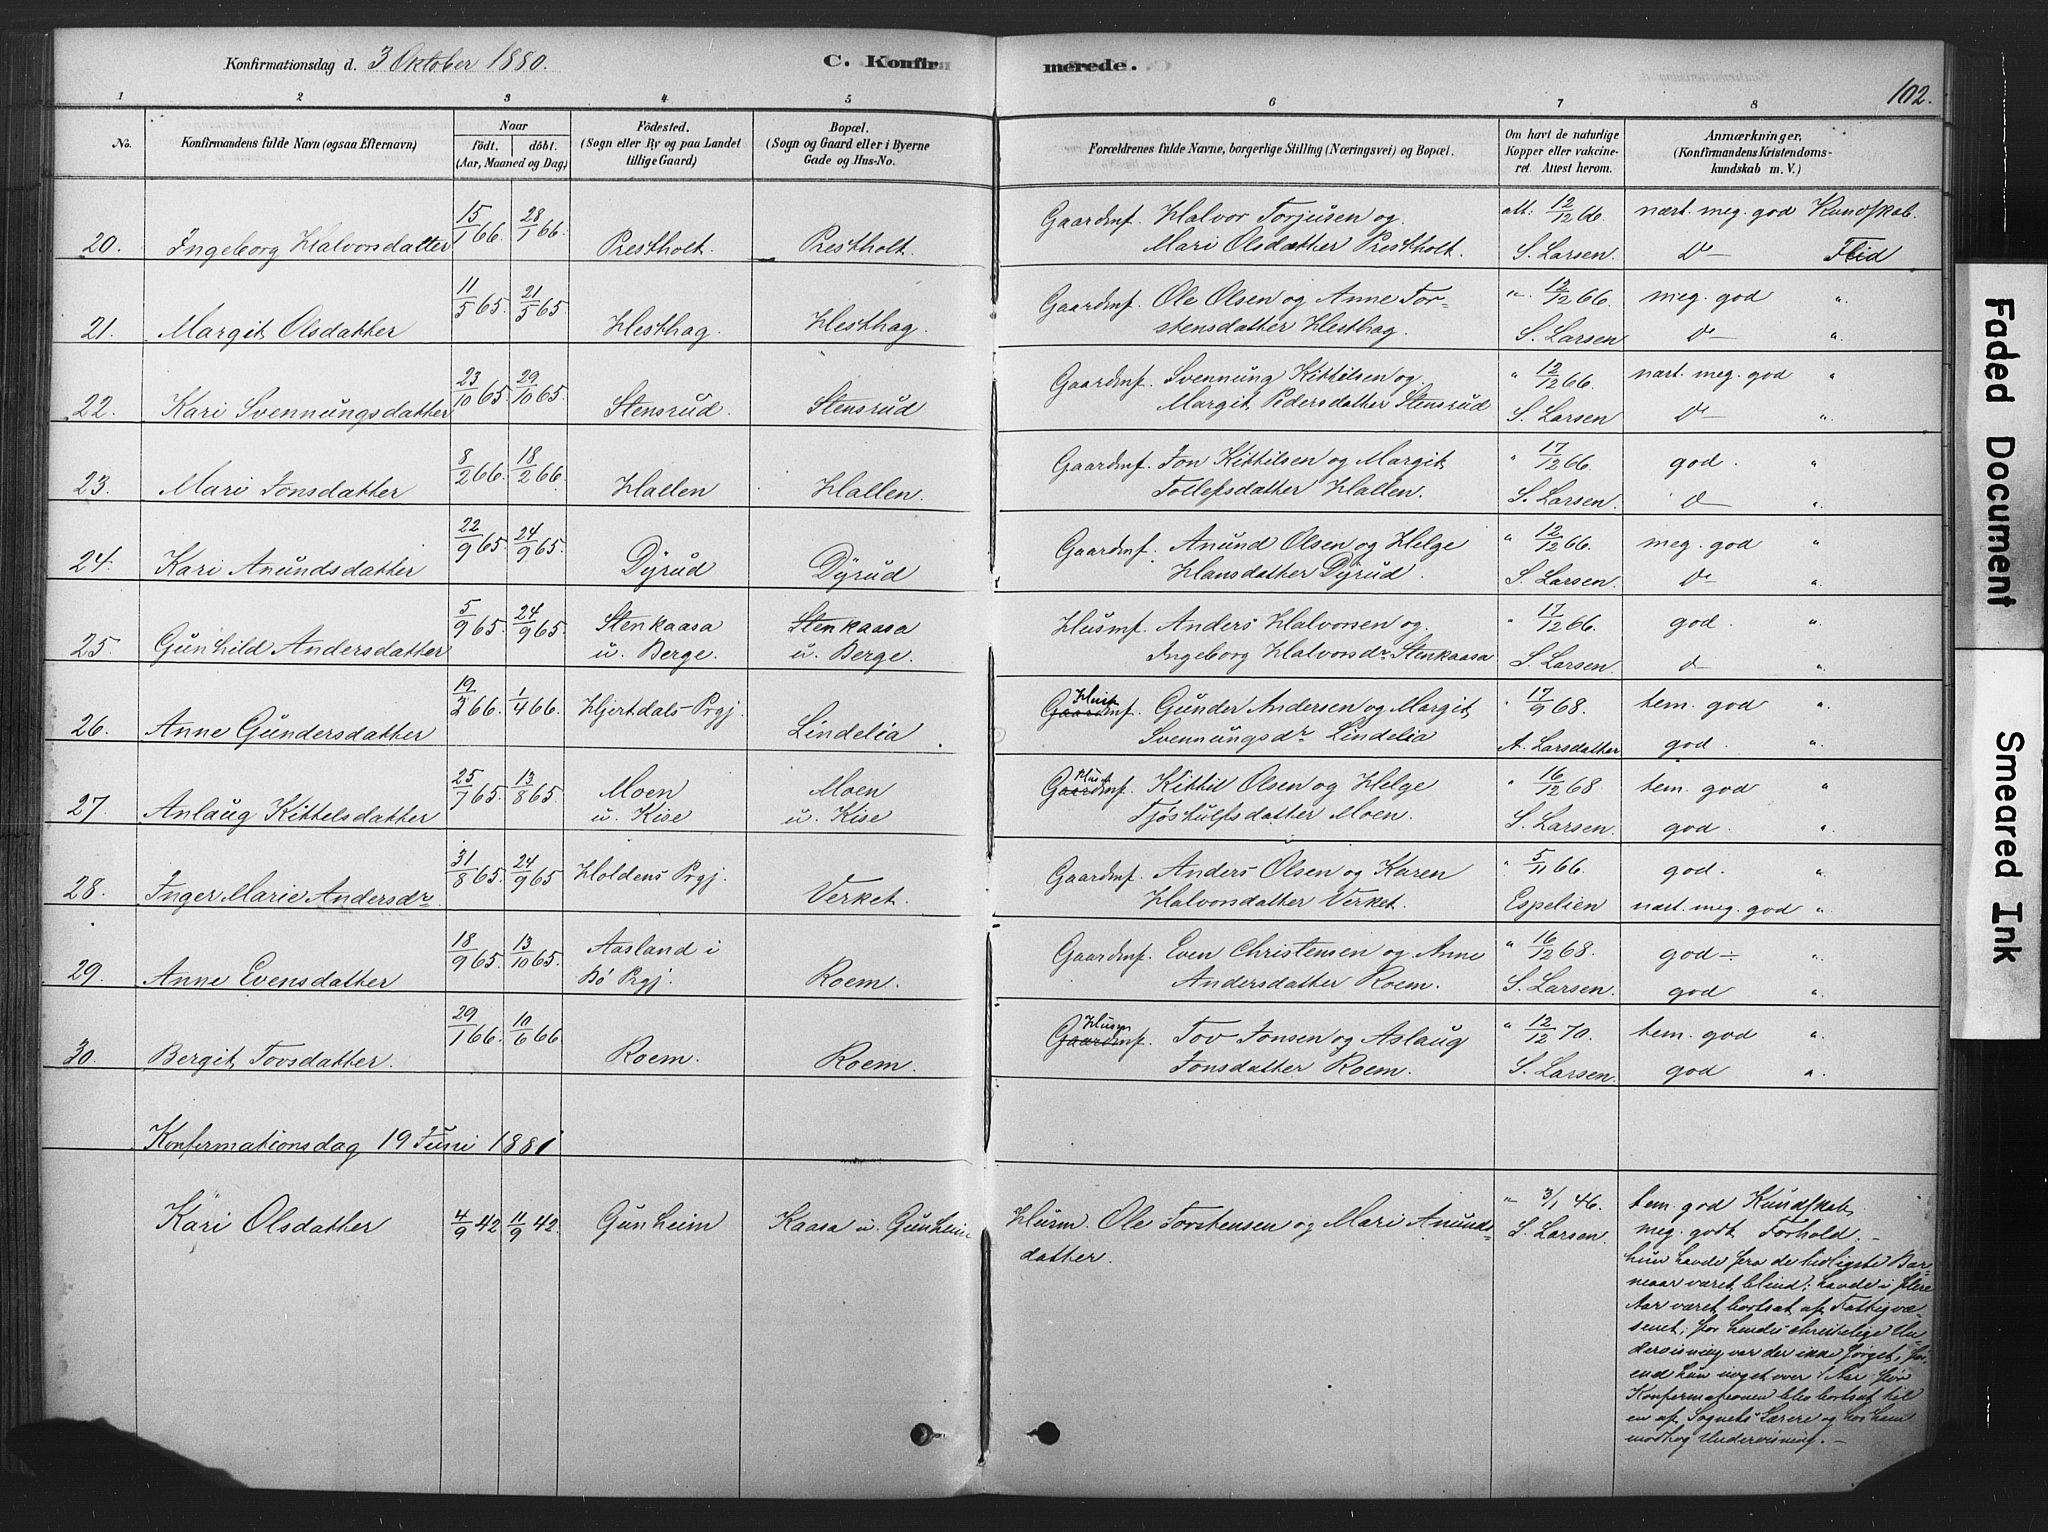 Konfirmationsdag d. 3 Oktober 1880.
C. Konfirmerede.
102.
1 2 3 4 5 6 7 8
No.
Konfirmandens fulde Navn (ogsaa Efternavn)
Naar
født. døbt.
(Aar, Maaned og Dag)
Fødested.
(Sogn eller By og paa Landet
tillige Gaard)
Bopæl.
(Sogn og Gaard eller i Byerne
Gade og Hus-No.
Forældrenes fulde Navne, borgerlige Stilling (Næringsvei) og Bopæl.
Om havt de naturlige
Kopper eller vakcine-
ret. Attest herom.
Anmærkninger,
(Konfirmandens Kristendoms-
kundskab m. V.)
20. Ingeborg Halvorsdatter 15/1 66. 28/1 66. Prestholt. Prestholt. Gaardmf. Halvor Torjusen og att: 12/12 66. nært. meg. god Kundskab.
Mari Olsdatter Prestholt. S. Larsen. Do Flid
21. Margit Olsdatter 11/5 65. 21/5 65. Hesthag. Hesthag. Gaardmf. Ole Olsen og Anne Tor- " 12/12 66. meg. god "
stensdatter Hesthag. S. Larsen Do "
22. Kari Svennungsdatter 23/10 65. 29/10 65. Stensrud. Stensrud Gaardmf. Svennung Kittilsen og " 12/12 66. nært. meg. god "
Margit Pedersdatter Stensrud S. Larsen Do "
23. Mari Jonsdatter 8/2 66. 18/2 66. Hallen Hallen. Gaardmf. Jon Kittilsen og Margit " 17/12 66. god. "
Tollefsdatter Hallen. S. Larsen. Do "
24. Kari Anundsdatter 22/9 65. 24/9 65. Dyrud Dyrud Gaardmf. Anund Olsen og Helge " 12/12 66. meg. god "
Hansdatter Dyrud. S. Larsen. Do "
25. Gunhild Andersdatter 5/9 65. 24/9 65. Stenkaasa Stenkaasa Husmf. Anders Halvorsen og " 17/12 66. god. "
u. Berge. u. Berge. Ingeborg Halvorsdr. Stenkaasa S. Larsen Do "
26. Anne Gundersdatter 19/3 66. 1/4 66. Hjertdals Prgj. Lindelia Husm Gaardmf. Gunder Andersen og Margit " 17/9 68. tem. god "
Svennungsdr. Lindelia A. Larsdatter god. "
27. Anlaug Kittelsdatter 25/7 65. 13/8 65. Moen Moen Husm Gaardmf. Kittil Olsen og Helge " 16/12 68 tem. god "
u. Kise u. Kise Tjøshulfsdatter Moen. S. Larsen. god. "
28. Inger Marie Andersdr. 31/8 65. 24/9 65 Holdens Prgj. Verket. Gaardmf. Anders Olsen og Karen " 5/11 66. god. "
Halvorsdatter Verket. Espelien nært. meg. god "
29. Anne Evensdatter 18/9 65. 13/10 65. Aasland i Roem. Gaardmf. Even Christensen og Anne " 16/12 68. god "
Bø Prgj. Andersdatter Roem. S. Larsen. god "
30. Bergit Tovsdatter. 29/1 66. 10/6 66. Roem. Roem. Husm Gaardmf. Tov Jonsen og Aslaug " 12/12 70. tem. god "
Jonsdatter Roem. S. Larsen. god "
Konfirmationsdag 19 Juni 1881
Kari Olsdatter 4/9 42 11/9 42. Gunheim Kaasa u. Gunheim Husm. Ole Torstensen og Mari Anunds- " 3/1 46. tem. god Kundskab,
datter. S. Larsen. meg. godt Forhold. -
hun havde fra de tidligste Bar-
neaar været blind; havde i flere
Aar været bortsat af Fattigvæ-
senet; for hendes christelige Un-
dervisning var der ikke sørget, før-
end hun noget over 1 Aar før
Konfirmationen blev bortsat til
en af Sognets Lærere og hos ham
modtog Undervisning. -
Faded Document
Smeared Ink